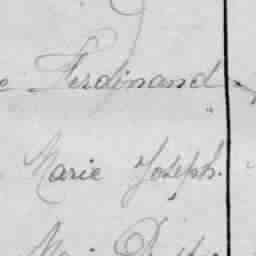 e Ferdinand
Marie Joseph.